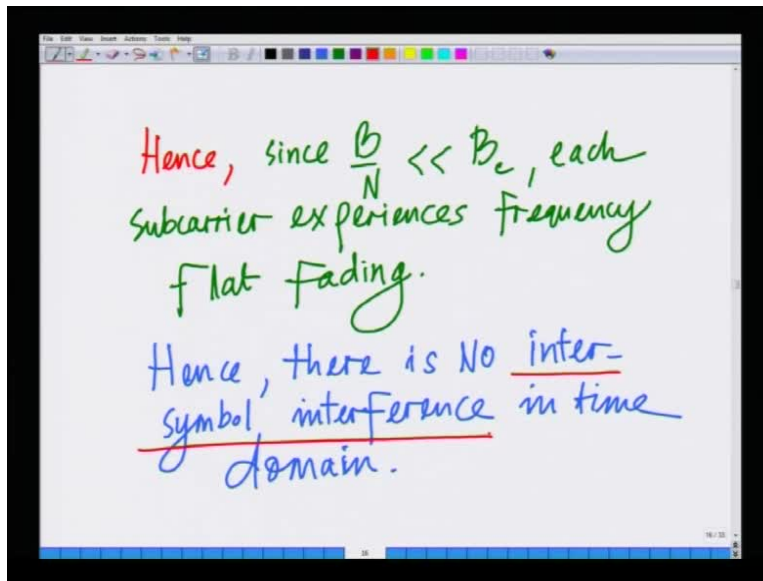 File Edit View Insert Actions Tools Help
Hence, since B/N << Bc, each
subcarrier experiences frequency
flat fading.
Hence, there is No inter-
symbol interference in time
domain.
16 / 33
16